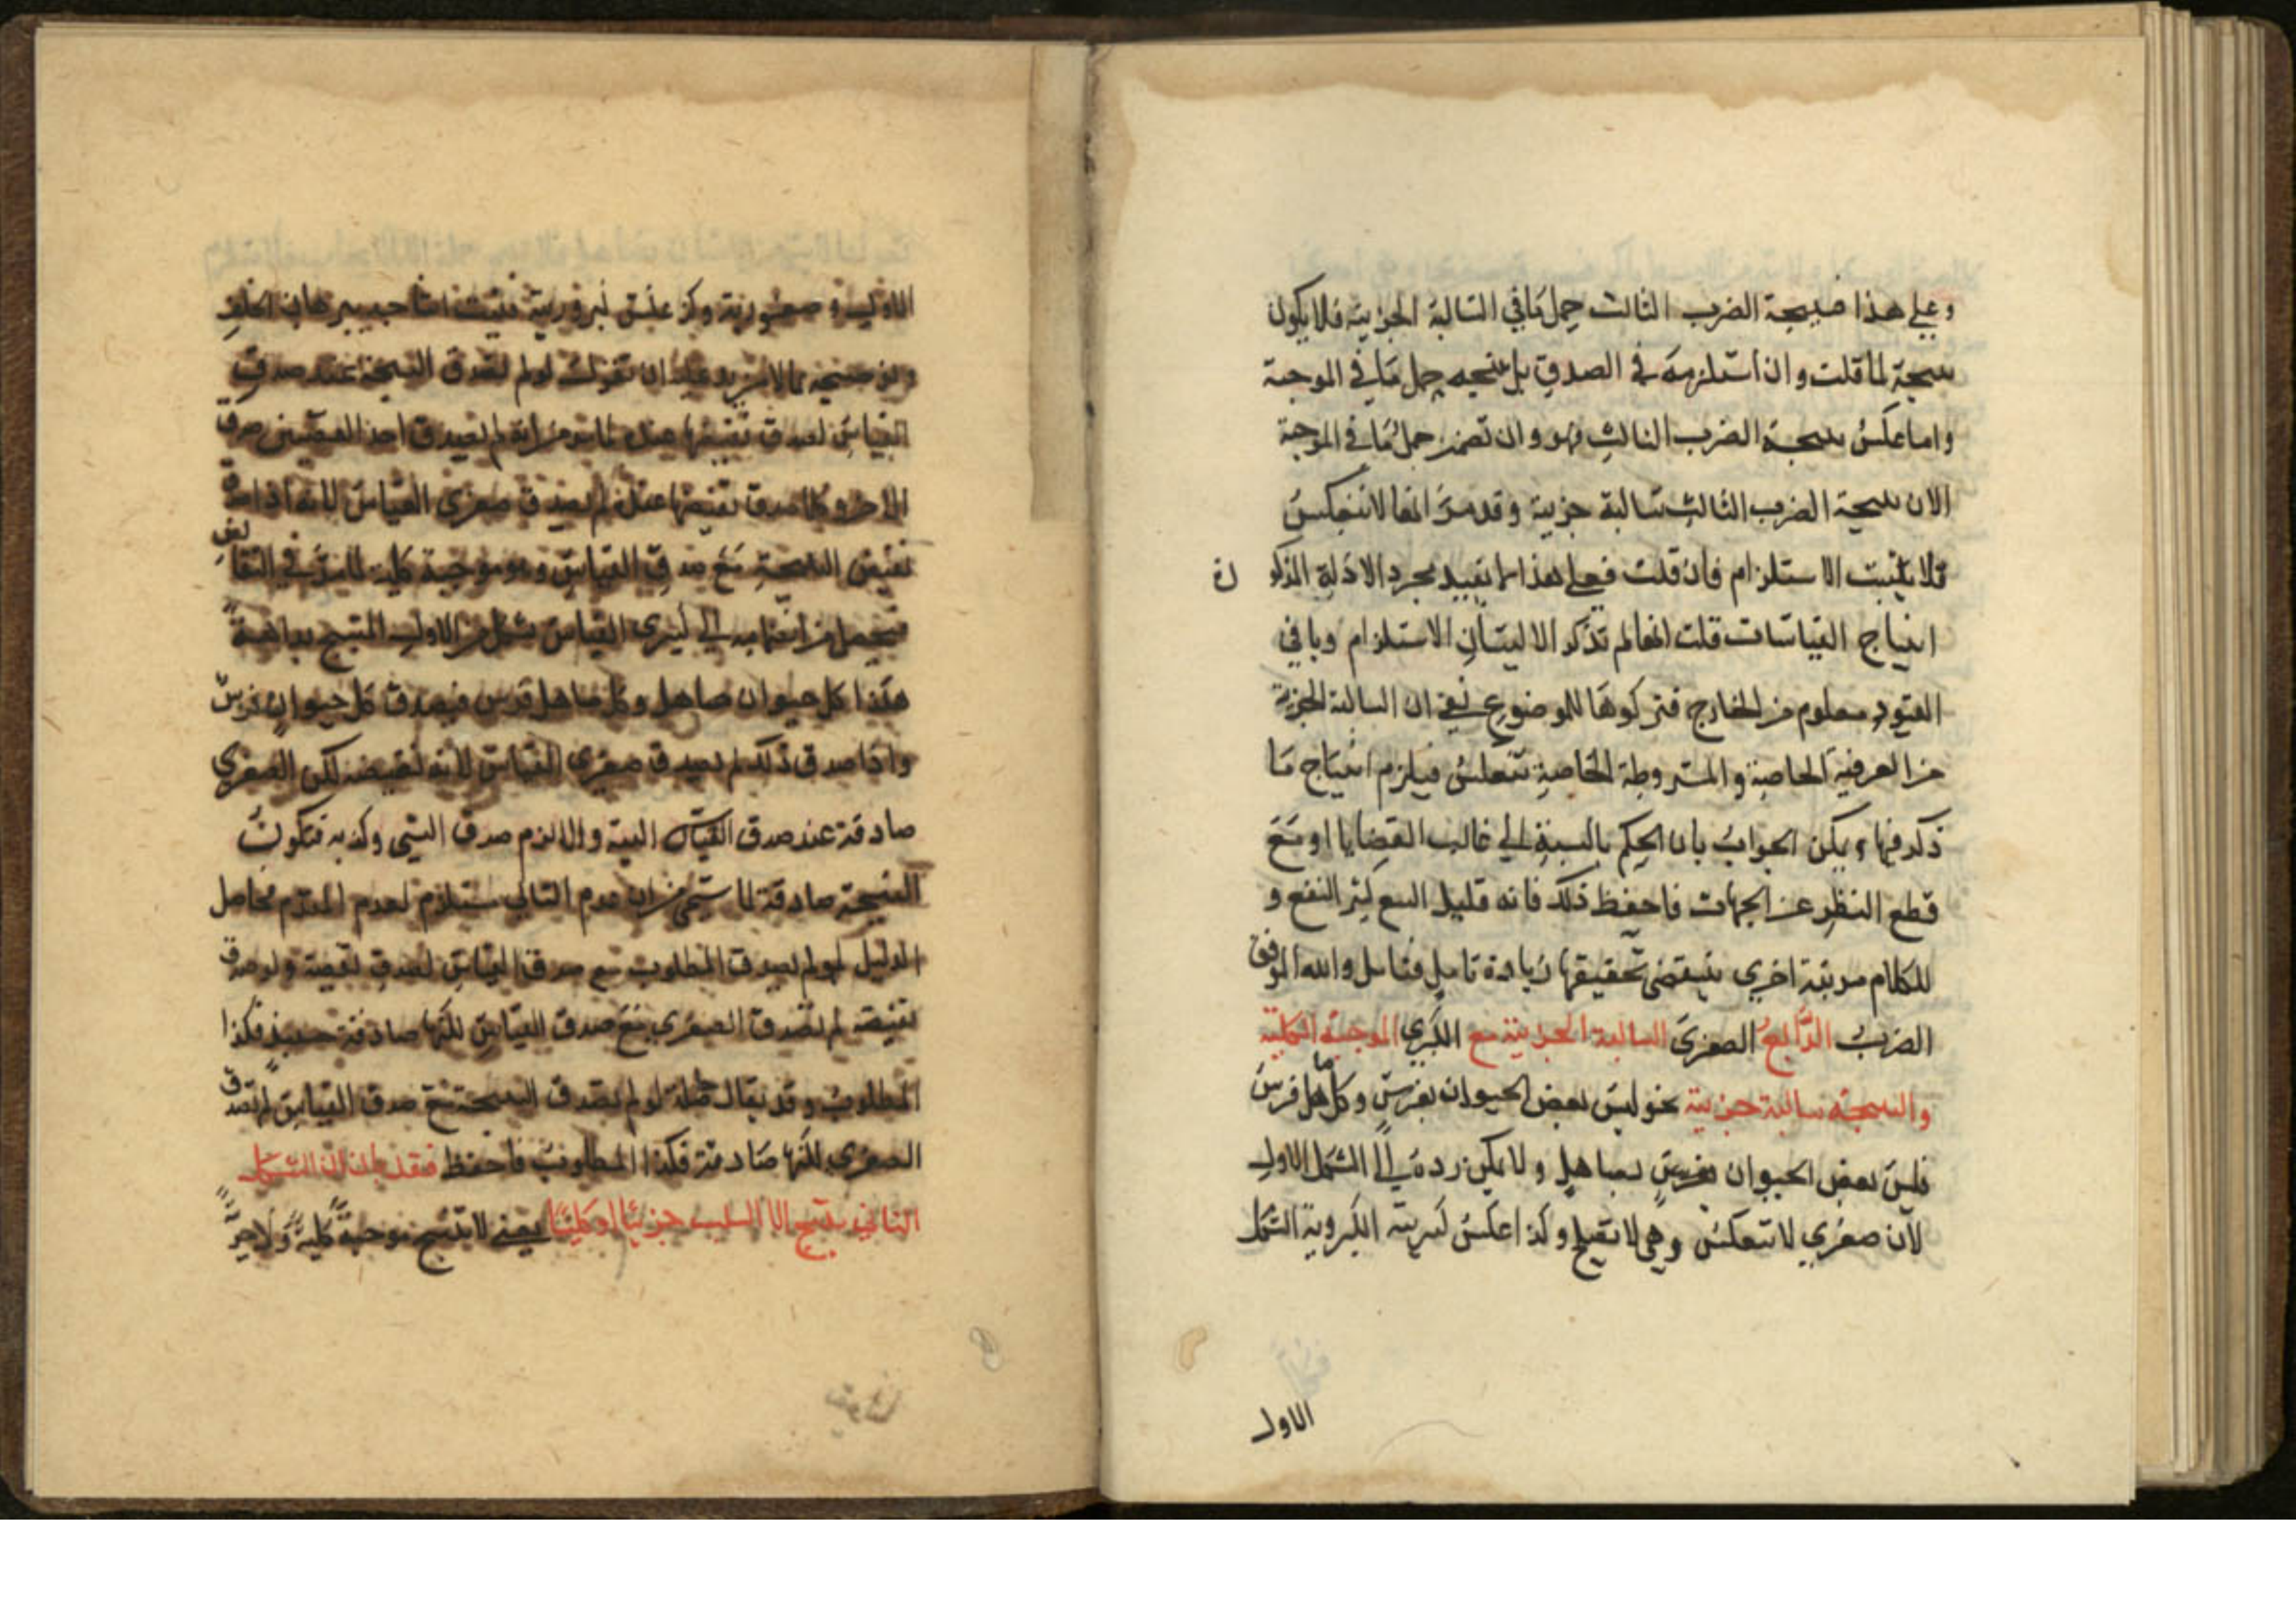 وعلي هذا فنتيجة الضرب الثالث حمل مافي السالبة الجزئية فلا يكون
نتيجة لما قلت وان استلزمه في الصدق بل نتيجه حمل مافي الموجبة
واما عكس نتيجة الضرب الثالث فهو وان تضمن حمل ما في الموجبة
الان نتيجة الضرب الثالث سالبة جزئية وقد مر انها لا تنعكس
فلا يثبت الاستلزام فان قلت فعلي هذا لم يفيد مجرد الادلة المذكو رة
انتاج القياسات قلت انها لم تذكر الا لبيان الاستلزام وباقي
القيود معلوم من الخارج فتركوها للوضوع بقي ان السالبة الجزئية
من العرفية الخاصة والمشروطة الخاصة تنعكس فيلزم انتاج ما
ذكر فيها ويمكن الجواب بان الحكم بالنسبة الي غالب القضايا او مع
قطع النظر عن الجهات فاحفظ ذلك فانه قليل السمع كثير النفع و
للكلام مرتبة اخري يقتضى تحقيقها زيادة تامل فتامل والله الموفق
الضرب الرابع الصغرى السالبة الجزئية مع الكبري الموجبة الكلية
والنتيجة سالبة جزئية نحو ليس بعض الحيوان بفرس وكل صاهل فرس
فليس بعض الحيوان بصاهل ولا يمكن رده الي الشكل الاول
لان صغري لا تنعكس وهي لا تقبل وكذا عكس كبريته الكبروية الشكل
الاول
الاول و صغروية وكز عكس كبروية فيثبت انتاجه ببرهان الخلف
القياس لصدق نقيضها عنده لما مر من انه لم يصدق احد النقيضين صدق
الاخر وكلما صدق نقيضها عنده لم يصدق صغرى القياس لانه اذا صدق
نقيض النتيجة مع صدق القياس وهو موجبة كلية لما مر في التناقض
يحصل من انضمامه الي كبري القياس شكل من الاول المنتج بداهة
هكذا كل حيوان صاهل وكل صاهل فرس فيصدق كل حيوان فرس
واذا صدق ذلك لم يصدق صغري القياس لانه نقيضه لكن الصغري
صادقة عند صدق القياس البتة والا لزم صدق الشي وكذبه فتكون
النتيجة صادقة لما سيجي من ان عدم التالي مستلزم لعدم المقدم فحاصل
الدليل لو لم يصدق المطلوب مع صدق القياس لصدق نقيضه ولو صدق
نقيضه لم تصدق الصغري مع صدق القياس لكنها صادقة حينئذ فكذا
المطلوب وقد يقال لو لم تصدق النتيجة مع صدق القياس لم تصدق
الصغري لكنها صادقة فكذا المطلوب فاحفظ فقد بان ان الشكل
الثاني لا ينتج الا السلب جزئيا او كليا يعني لا تنتج موجبة كلية ولا جزئية